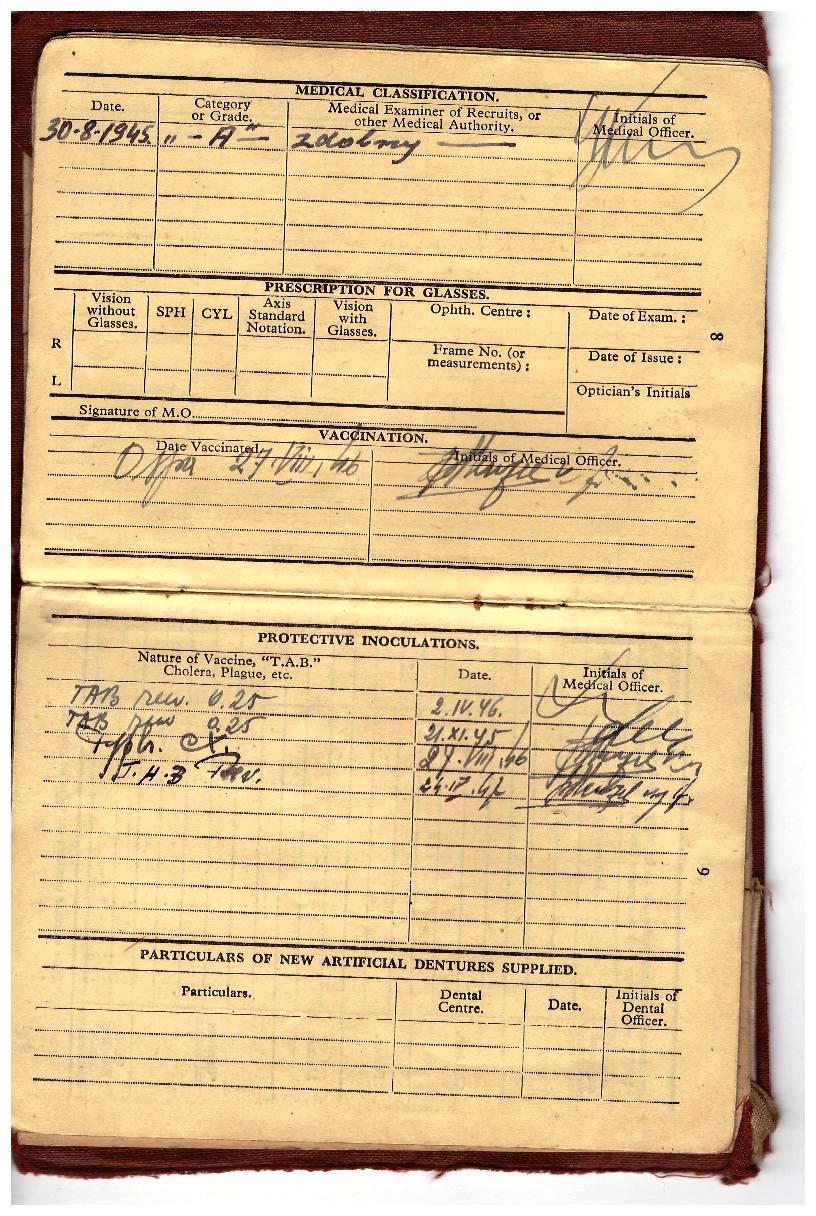 MEDICAL CLASSIFICATION.
Date.
Category or Grade.
Medical Examiner of Recruits, or other Medical Authority.
Initials of Medical Officer.
30-8-1945. „-A"- zdolny —
PRESCRIPTION FOR GLASSES.
Vision without Glasses.
SPH
CYL
Axis Standard Notation.
Vision with Glasses.
Ophth. Centre :
Date of Exam. :
R
Frame No. (or measurements) :
Date of Issue :
L
Optician's Initials
Signature of M.O.
8
VACCINATION.
Date Vaccinated.
Initials of Medical Officer.
Ospa 27.VIII.46
PROTECTIVE INOCULATIONS.
Nature of Vaccine, "T.A.B." Cholera, Plague, etc.
Date.
Initials of Medical Officer.
TAB rew. 0.25 2.IV.46.
TAB rew 0.25 21.XI.45
27.VIII.46
T.A.B Rev. 24.IV.47
9
PARTICULARS OF NEW ARTIFICIAL DENTURES SUPPLIED.
Particulars.
Dental Centre.
Date.
Initials of Dental Officer.